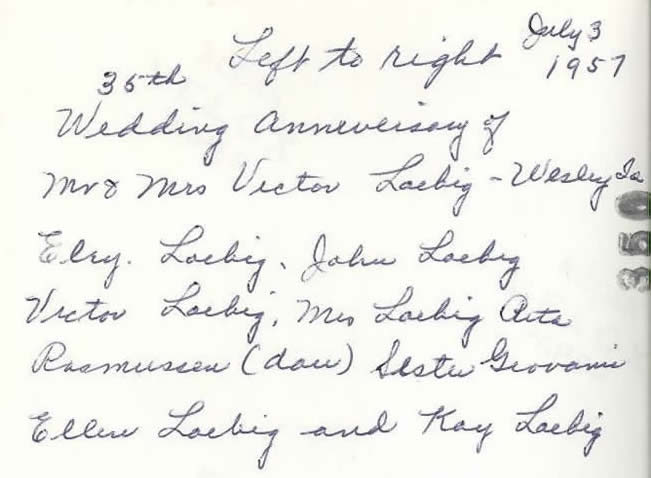 Left to right July 3
1957
35th
Wedding Anneversary of
Mr & Mrs Victor Loebig - Wesley Ia
Elry. Loebig, John Loebig
Victor Loebig, Mrs Loebig Arta
Rasmussen (dau) Sister Geovanni
Ellen Loebig and Kay Loebig
350